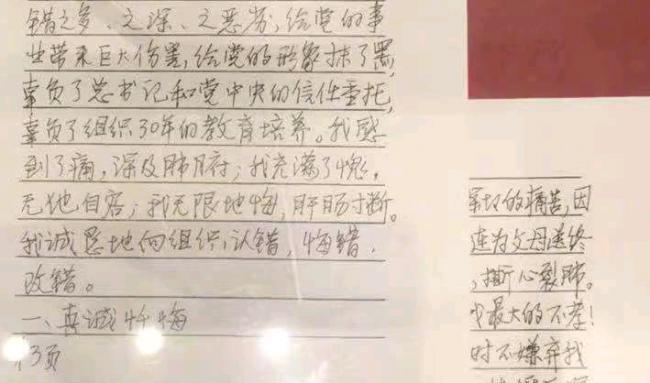 错之多、之深、之恶劣,给党的事
业带来巨大伤害,给党的形象抹了黑,
辜负了总书记和党中央的信任重托,
辜负了组织30年的教育培养。我感
到了痛,深及肺腑;我充满了愧,
无地自容;我无限地悔,肝肠寸断。
我诚恳地向组织认错,悔错,
改错。
一、真诚忏悔
13页
的痛苦,因
连为父母送终
,撕心裂肺。
最大的不孝!
时不嫌弃我